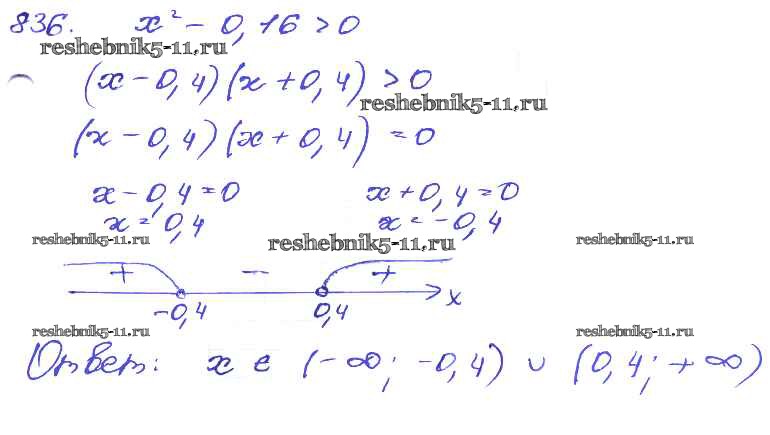 836. x² - 0,16 > 0
reshebnik5-11.ru
(x - 0,4)(x + 0,4) > 0
reshebnik5-11.ru
(x - 0,4)(x + 0,4) = 0
x - 0,4 = 0 x + 0,4 = 0
x = 0,4 x = -0,4
reshebnik5-11.ru reshebnik5-11.ru reshebnik5-11.ru
+ - +
-0,4 0,4 x
reshebnik5-11.ru reshebnik5-11.ru
Ответ: x ∈ (-∞; -0,4) ∪ (0,4; +∞)